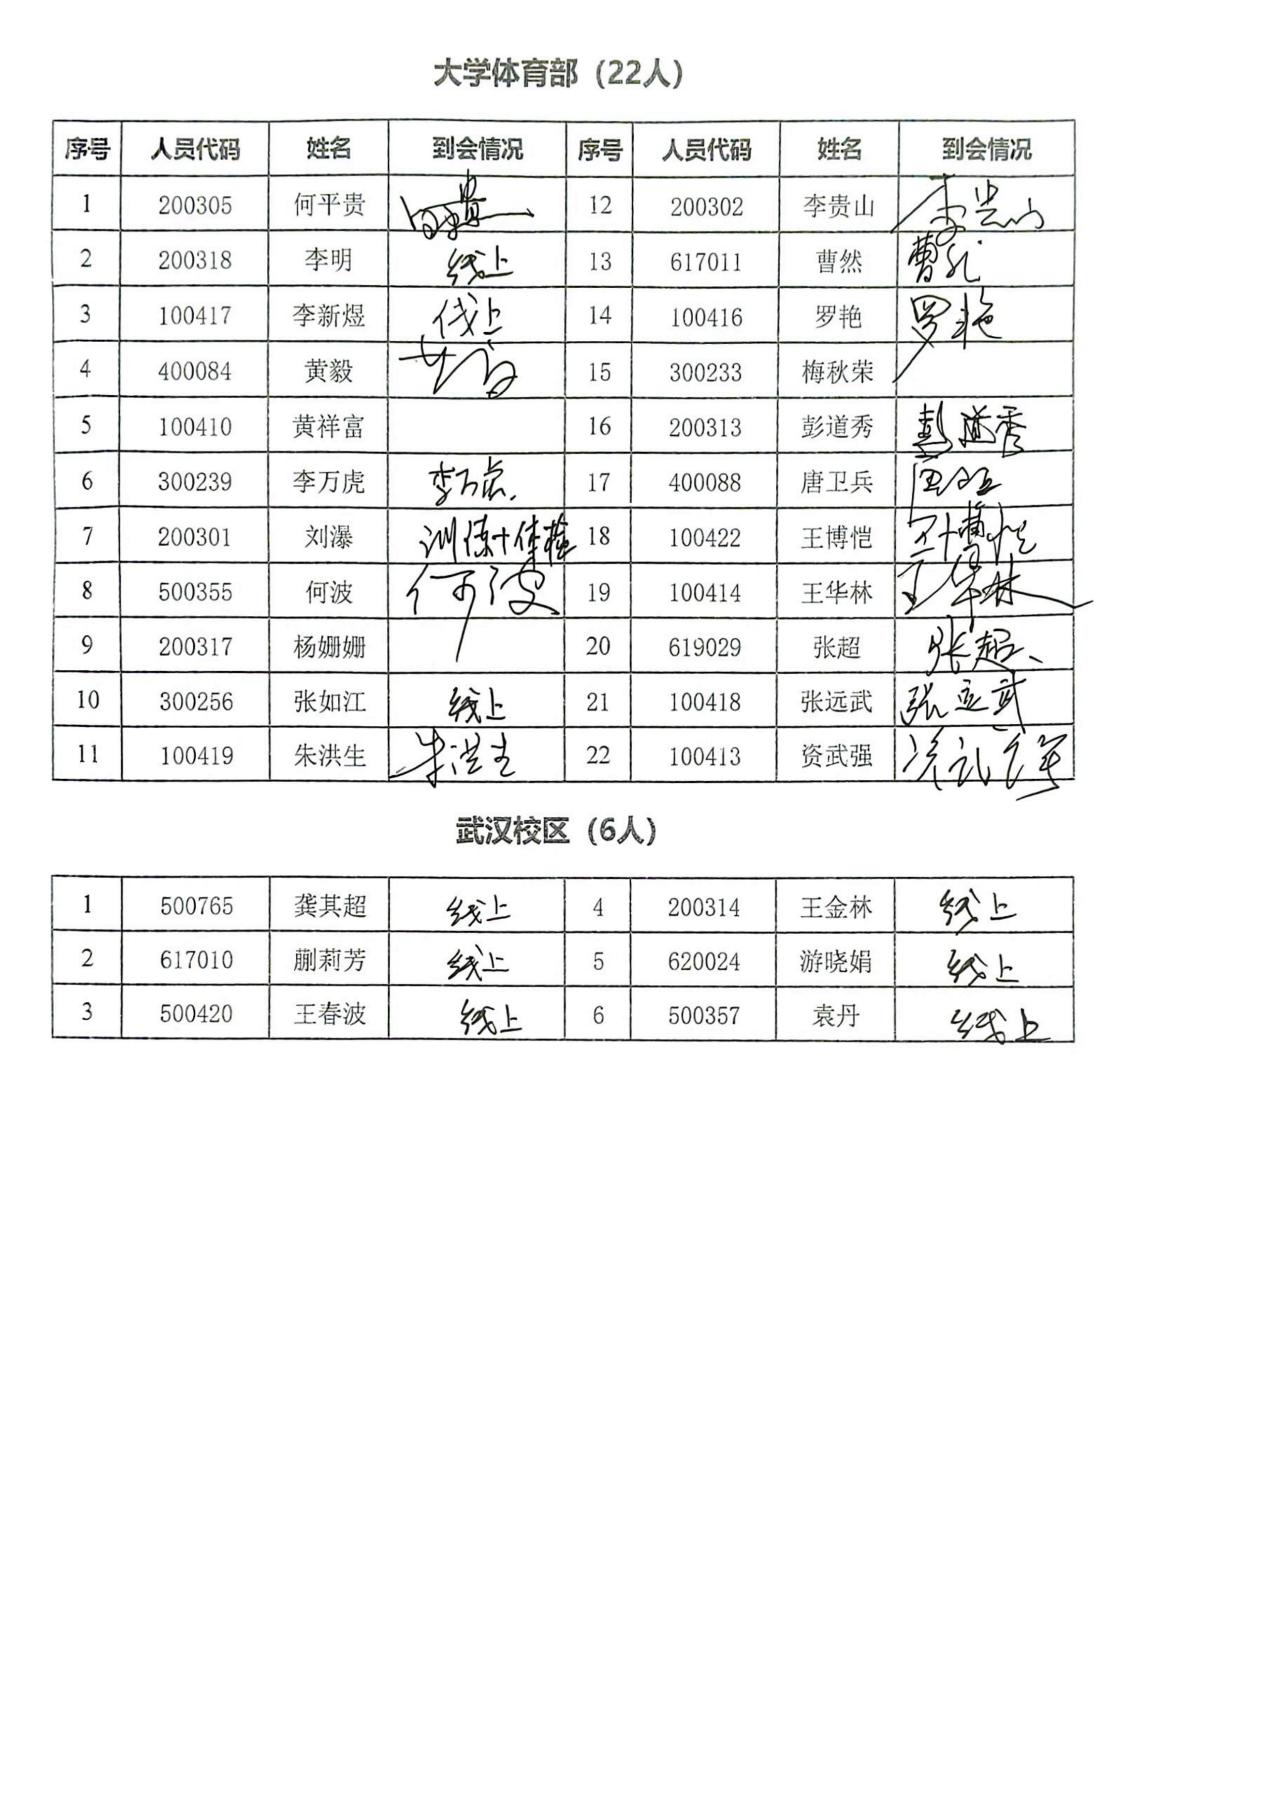 大学体育部（22人）
序号 人员代码 姓名 到会情况 序号 人员代码 姓名 到会情况
1 200305 何平贵 12 200302 李贵山 李贵山
2 200318 李明 线上 13 617011 曹然 曹然
3 100417 李新煜 线上 14 100416 罗艳 罗艳
4 400084 黄毅 15 300233 梅秋荣
5 100410 黄祥富 16 200313 彭道秀 彭道秀
6 300239 李万虎 李万虎 17 400088 唐卫兵
7 200301 刘瀑 训练+体检 18 100422 王博恺 王博恺
8 500355 何波 何波 19 100414 王华林 王华林
9 200317 杨姗姗 20 619029 张超 张超
10 300256 张如江 线上 21 100418 张远武 张远武
11 100419 朱洪生 朱洪生 22 100413 资武强
武汉校区（6人）
1 500765 龚其超 线上 4 200314 王金林 线上
2 617010 蒯莉芳 线上 5 620024 游晓娟 线上
3 500420 王春波 线上 6 500357 袁丹 线上